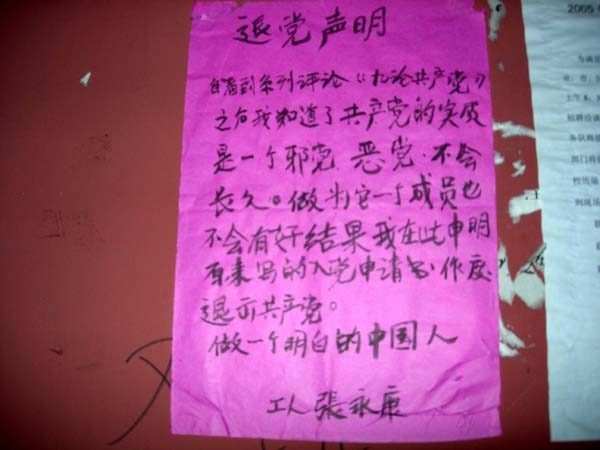 退党声明
自看到系列评论《九论共产党》
之后我知道了共产党的实质
是一个邪党 恶党.不会
长久。做为它一个成员也
不会有好结果我在此申明
原来写的入党申请书作废
退示共产党。
做一个明白的中国人
工人 張永康
2005
为满足
招聘洽谈
部门将
校历届
到现场